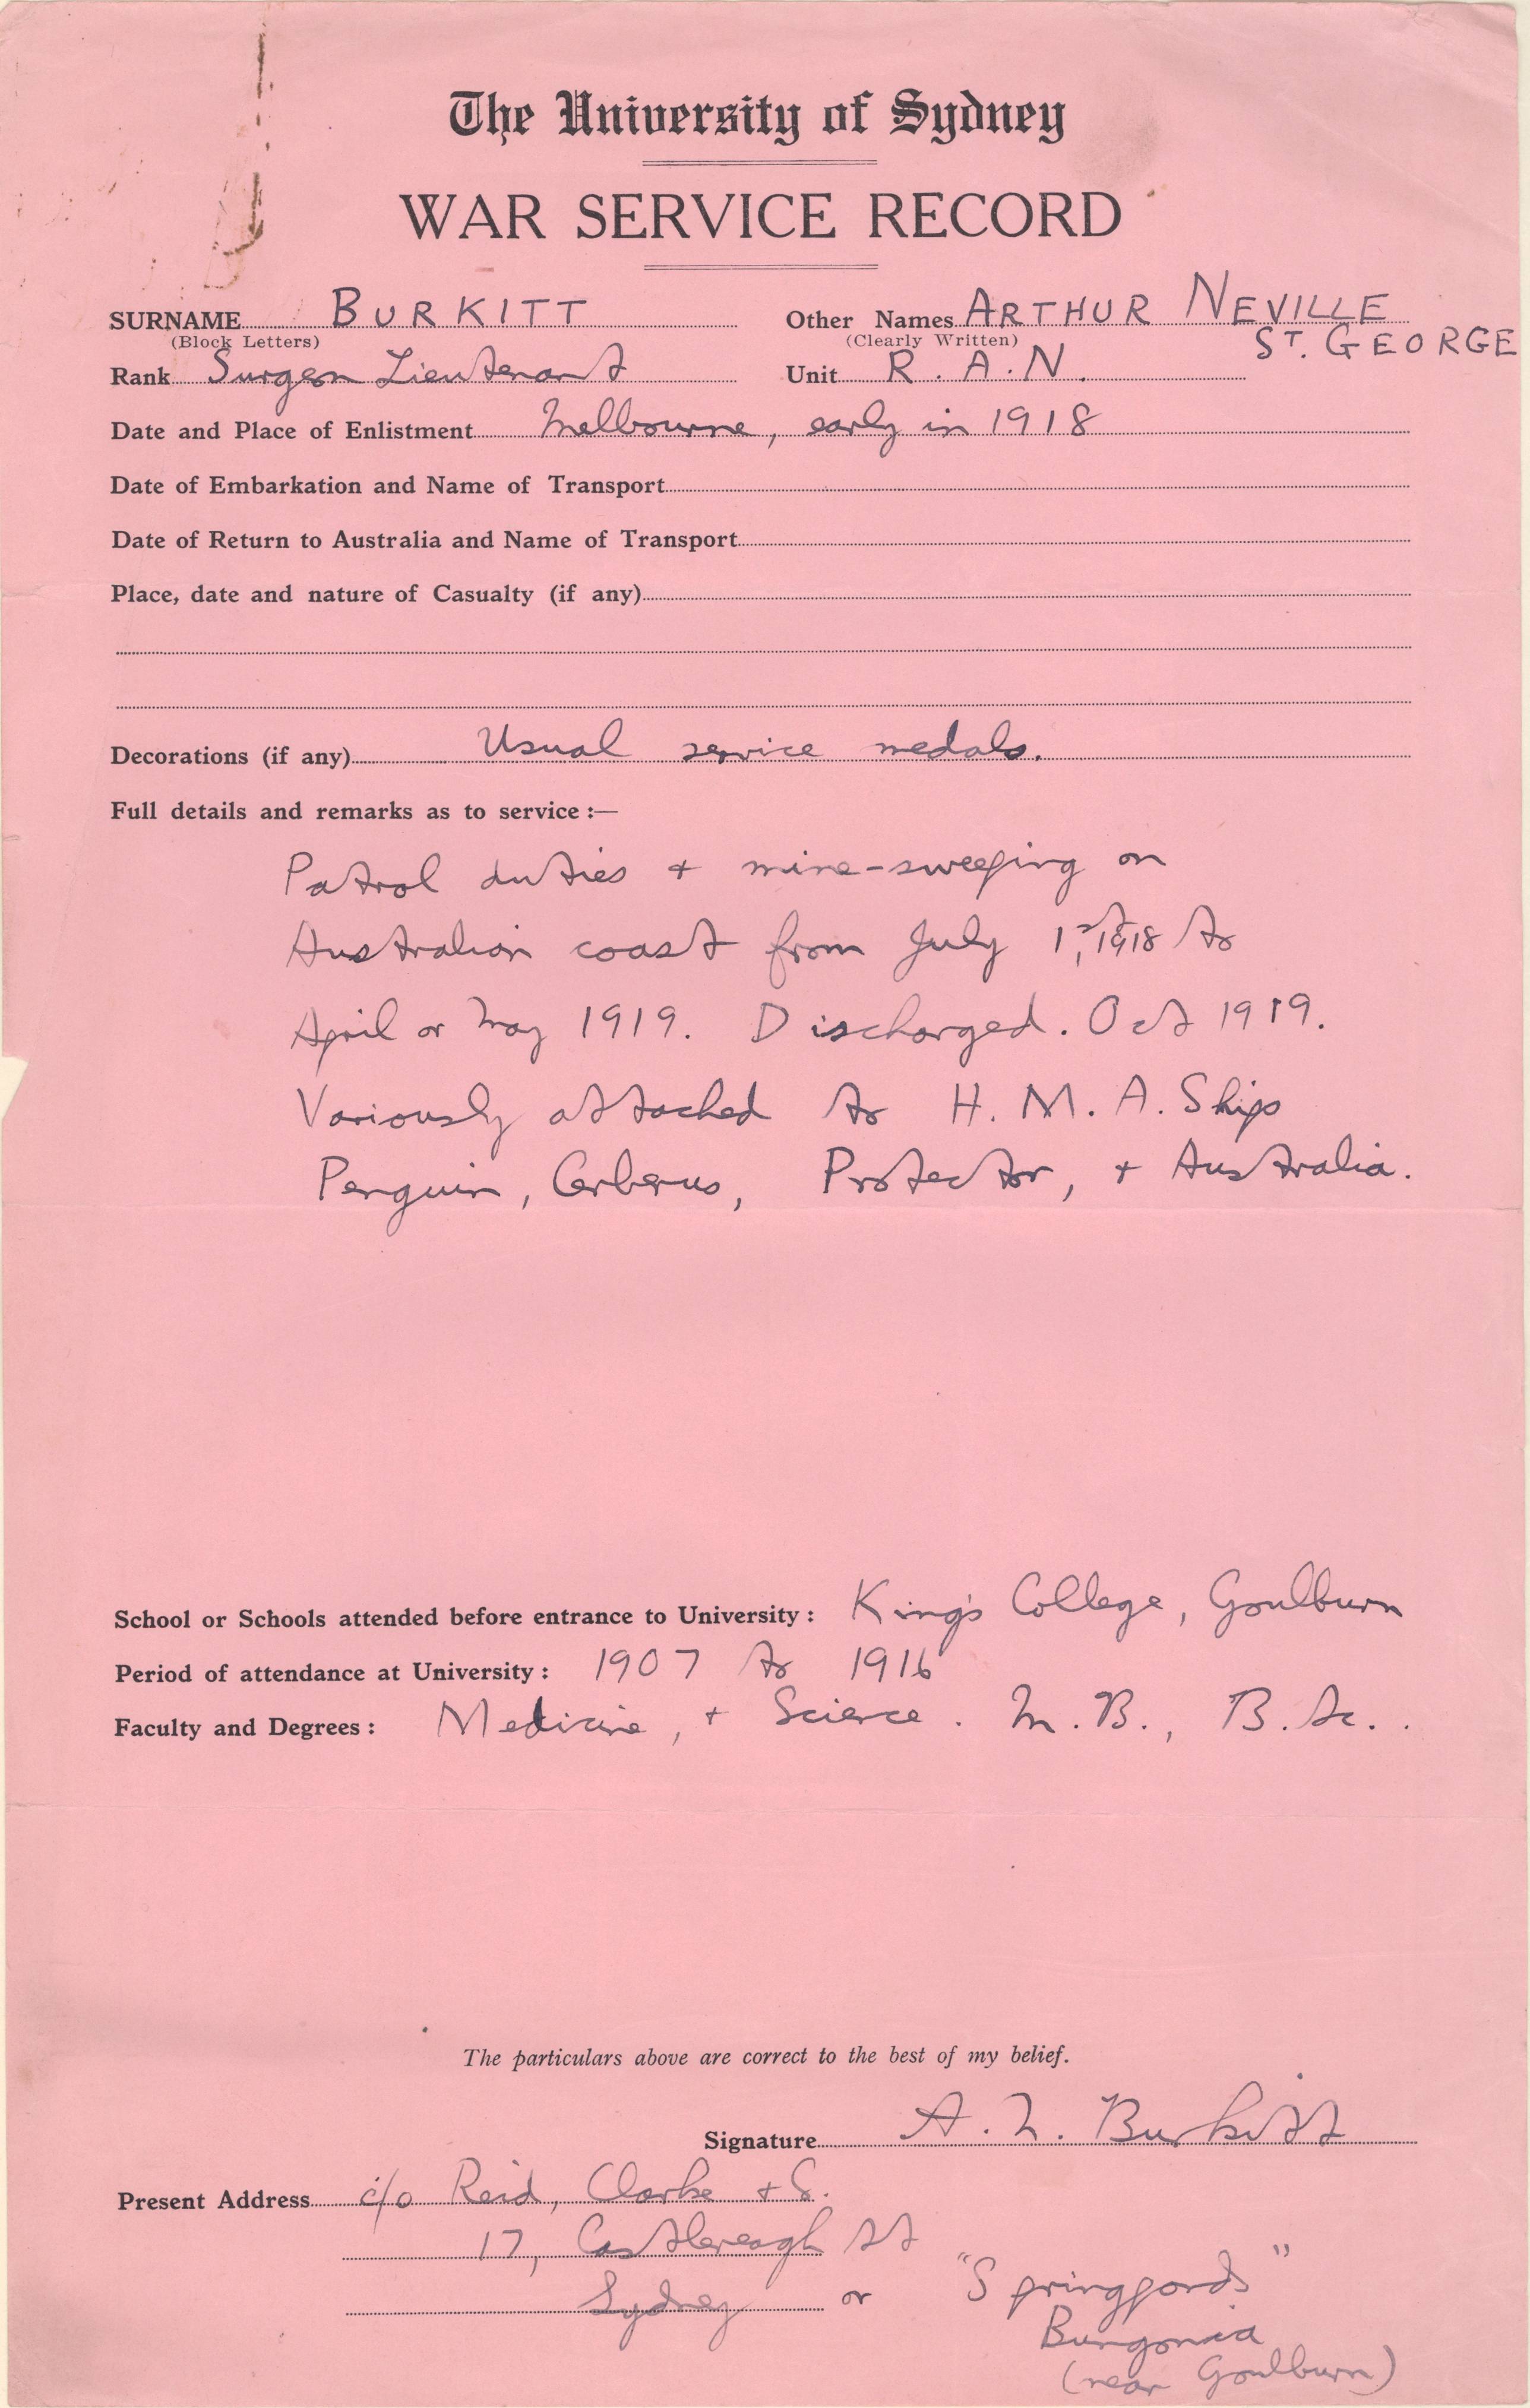 The University of Sydney
WAR SERVICE RECORD
SURNAME BURKITT Other Names ARTHUR NEVILLE
(Block Letters) (Clearly Written) ST. GEORGE
Rank Surgeon Lieutenant Unit R. A. N.
Date and Place of Enlistment Melbourne, early in 1918
Date of Embarkation and Name of Transport
Date of Return to Australia and Name of Transport
Place, date and nature of Casualty (if any)
Decorations (if any) Usual service medals.
Full details and remarks as to service :—
Patrol duties + mine-sweeping on
Australian coast from July 1st, 1918 to
April or May 1919. Discharged. Oct 1919.
Variously attached to H. M. A. Ships
Penguin, Cerberus, Protector, + Australia.
School or Schools attended before entrance to University : King's College, Goulburn
Period of attendance at University : 1907 to 1916
Faculty and Degrees : Medicine, + Science. M.B., B.Sc..
The particulars above are correct to the best of my belief.
Signature A. N. Burkitt
Present Address c/o Reid, Clarke +
17, Castlereagh St
Sydney or "Springponds"
Bungonia
(near Goulburn)